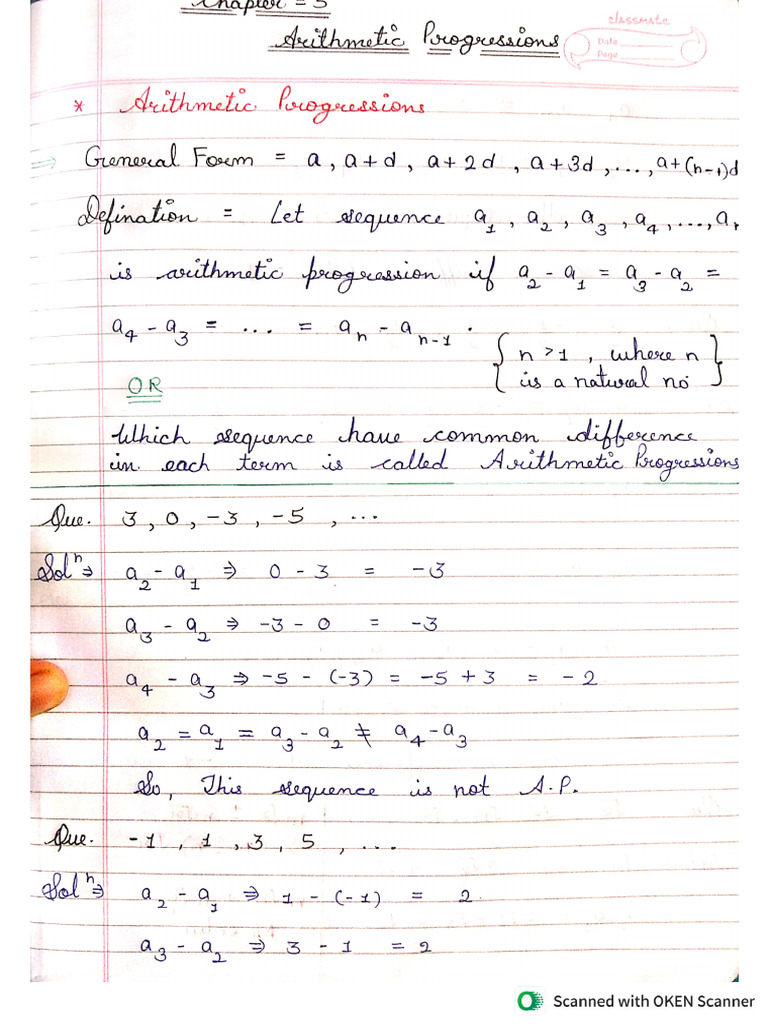 Chapter = 5
Arithmetic Progressions
classmate
Date
Page
* Arithmetic Progressions
⇒ General Form = a, a+d, a+2d, a+3d, ..., a+(n-1)d
Defination = Let sequence a₁, a₂, a₃, a₄, ..., aₙ
is arithmetic progression if a₂ - a₁ = a₃ - a₂ =
a₄ - a₃ = ... = aₙ - aₙ₋₁.
{n>1, where n is a natural no}
OR
Which sequence have common difference
in each term is called Arithmetic Progressions
Que. 3, 0, -3, -5, ...
Solⁿ⇒ a₂ - a₁ ⇒ 0 - 3 = -3
a₃ - a₂ ⇒ -3 - 0 = -3
a₄ - a₃ ⇒ -5 - (-3) = -5 + 3 = -2
a₂ = a₁ = a₃ - a₂ ≠ a₄ - a₃
So, This sequence is not A.P.
Que. -1, 1, 3, 5, ...
Solⁿ⇒ a₂ - a₁ ⇒ 1 - (-1) = 2
a₃ - a₂ ⇒ 3 - 1 = 2
Scanned with OKEN Scanner